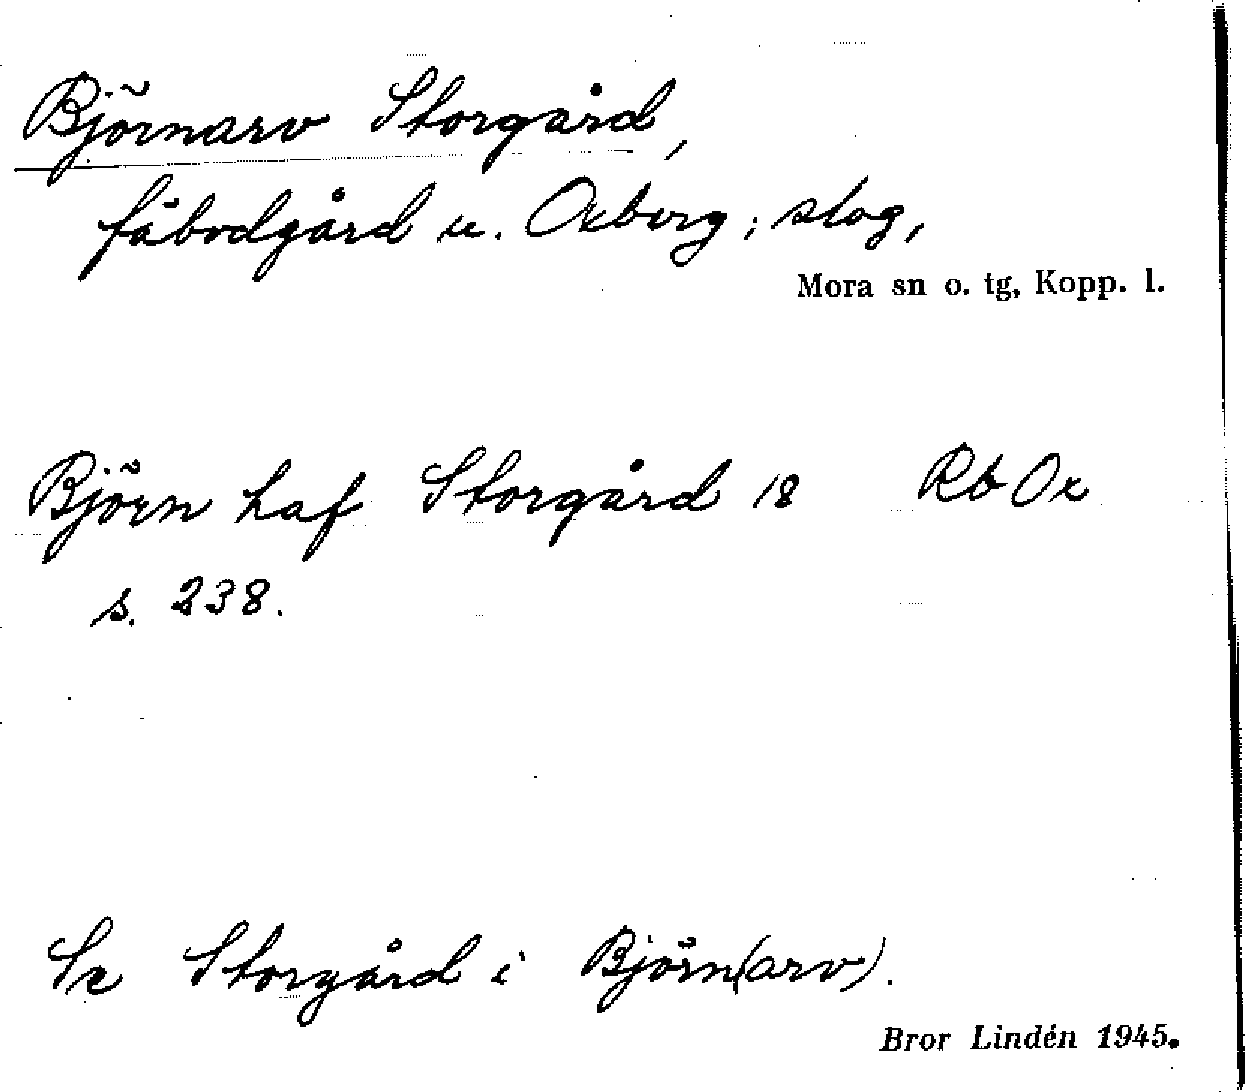 Björnarv Storgård,
fäbodgård u. Oxberg; slog,
Mora sn o. tg, Kopp. l.
Björn haf Storgård 18 Rb Ox
s. 238.
Se Storgård i Björn(arv).
Bror Lindén 1945.